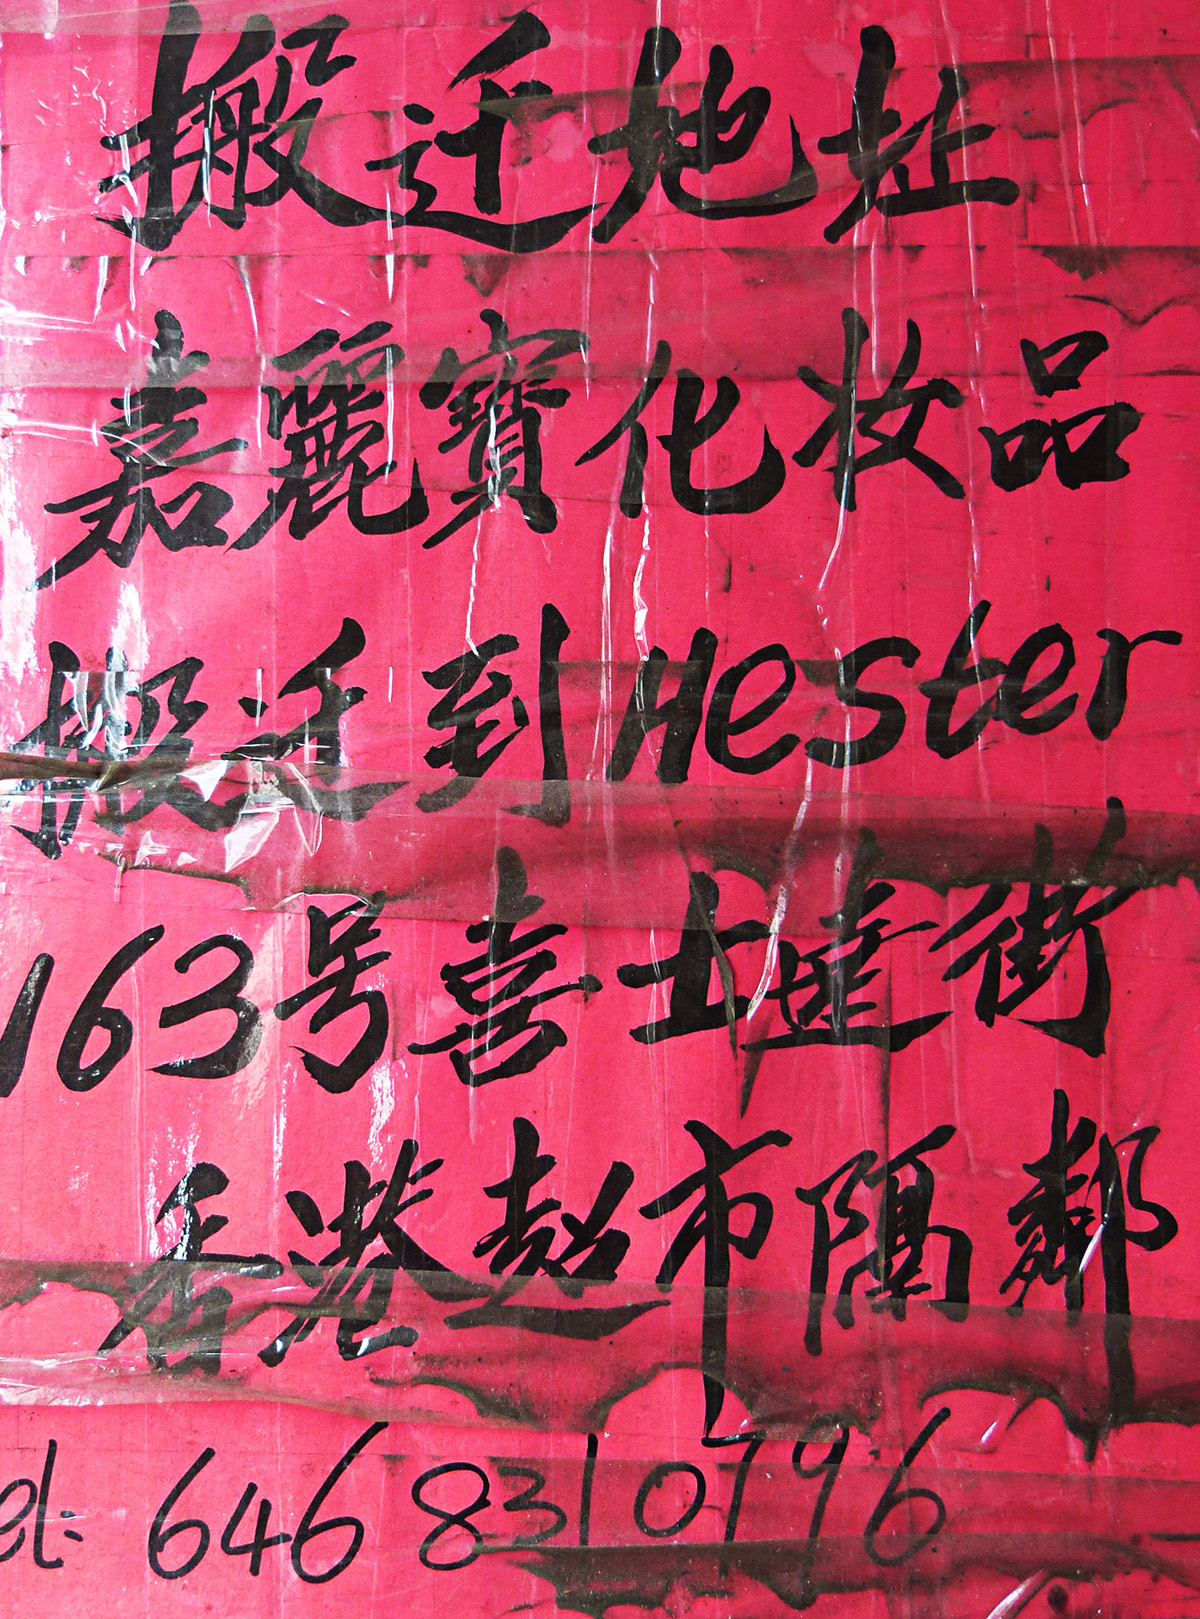 搬迁地址
嘉麗寶化妆品
搬迁到Hester
163号喜士街
香港超市隔鄰
el: 646 8310796